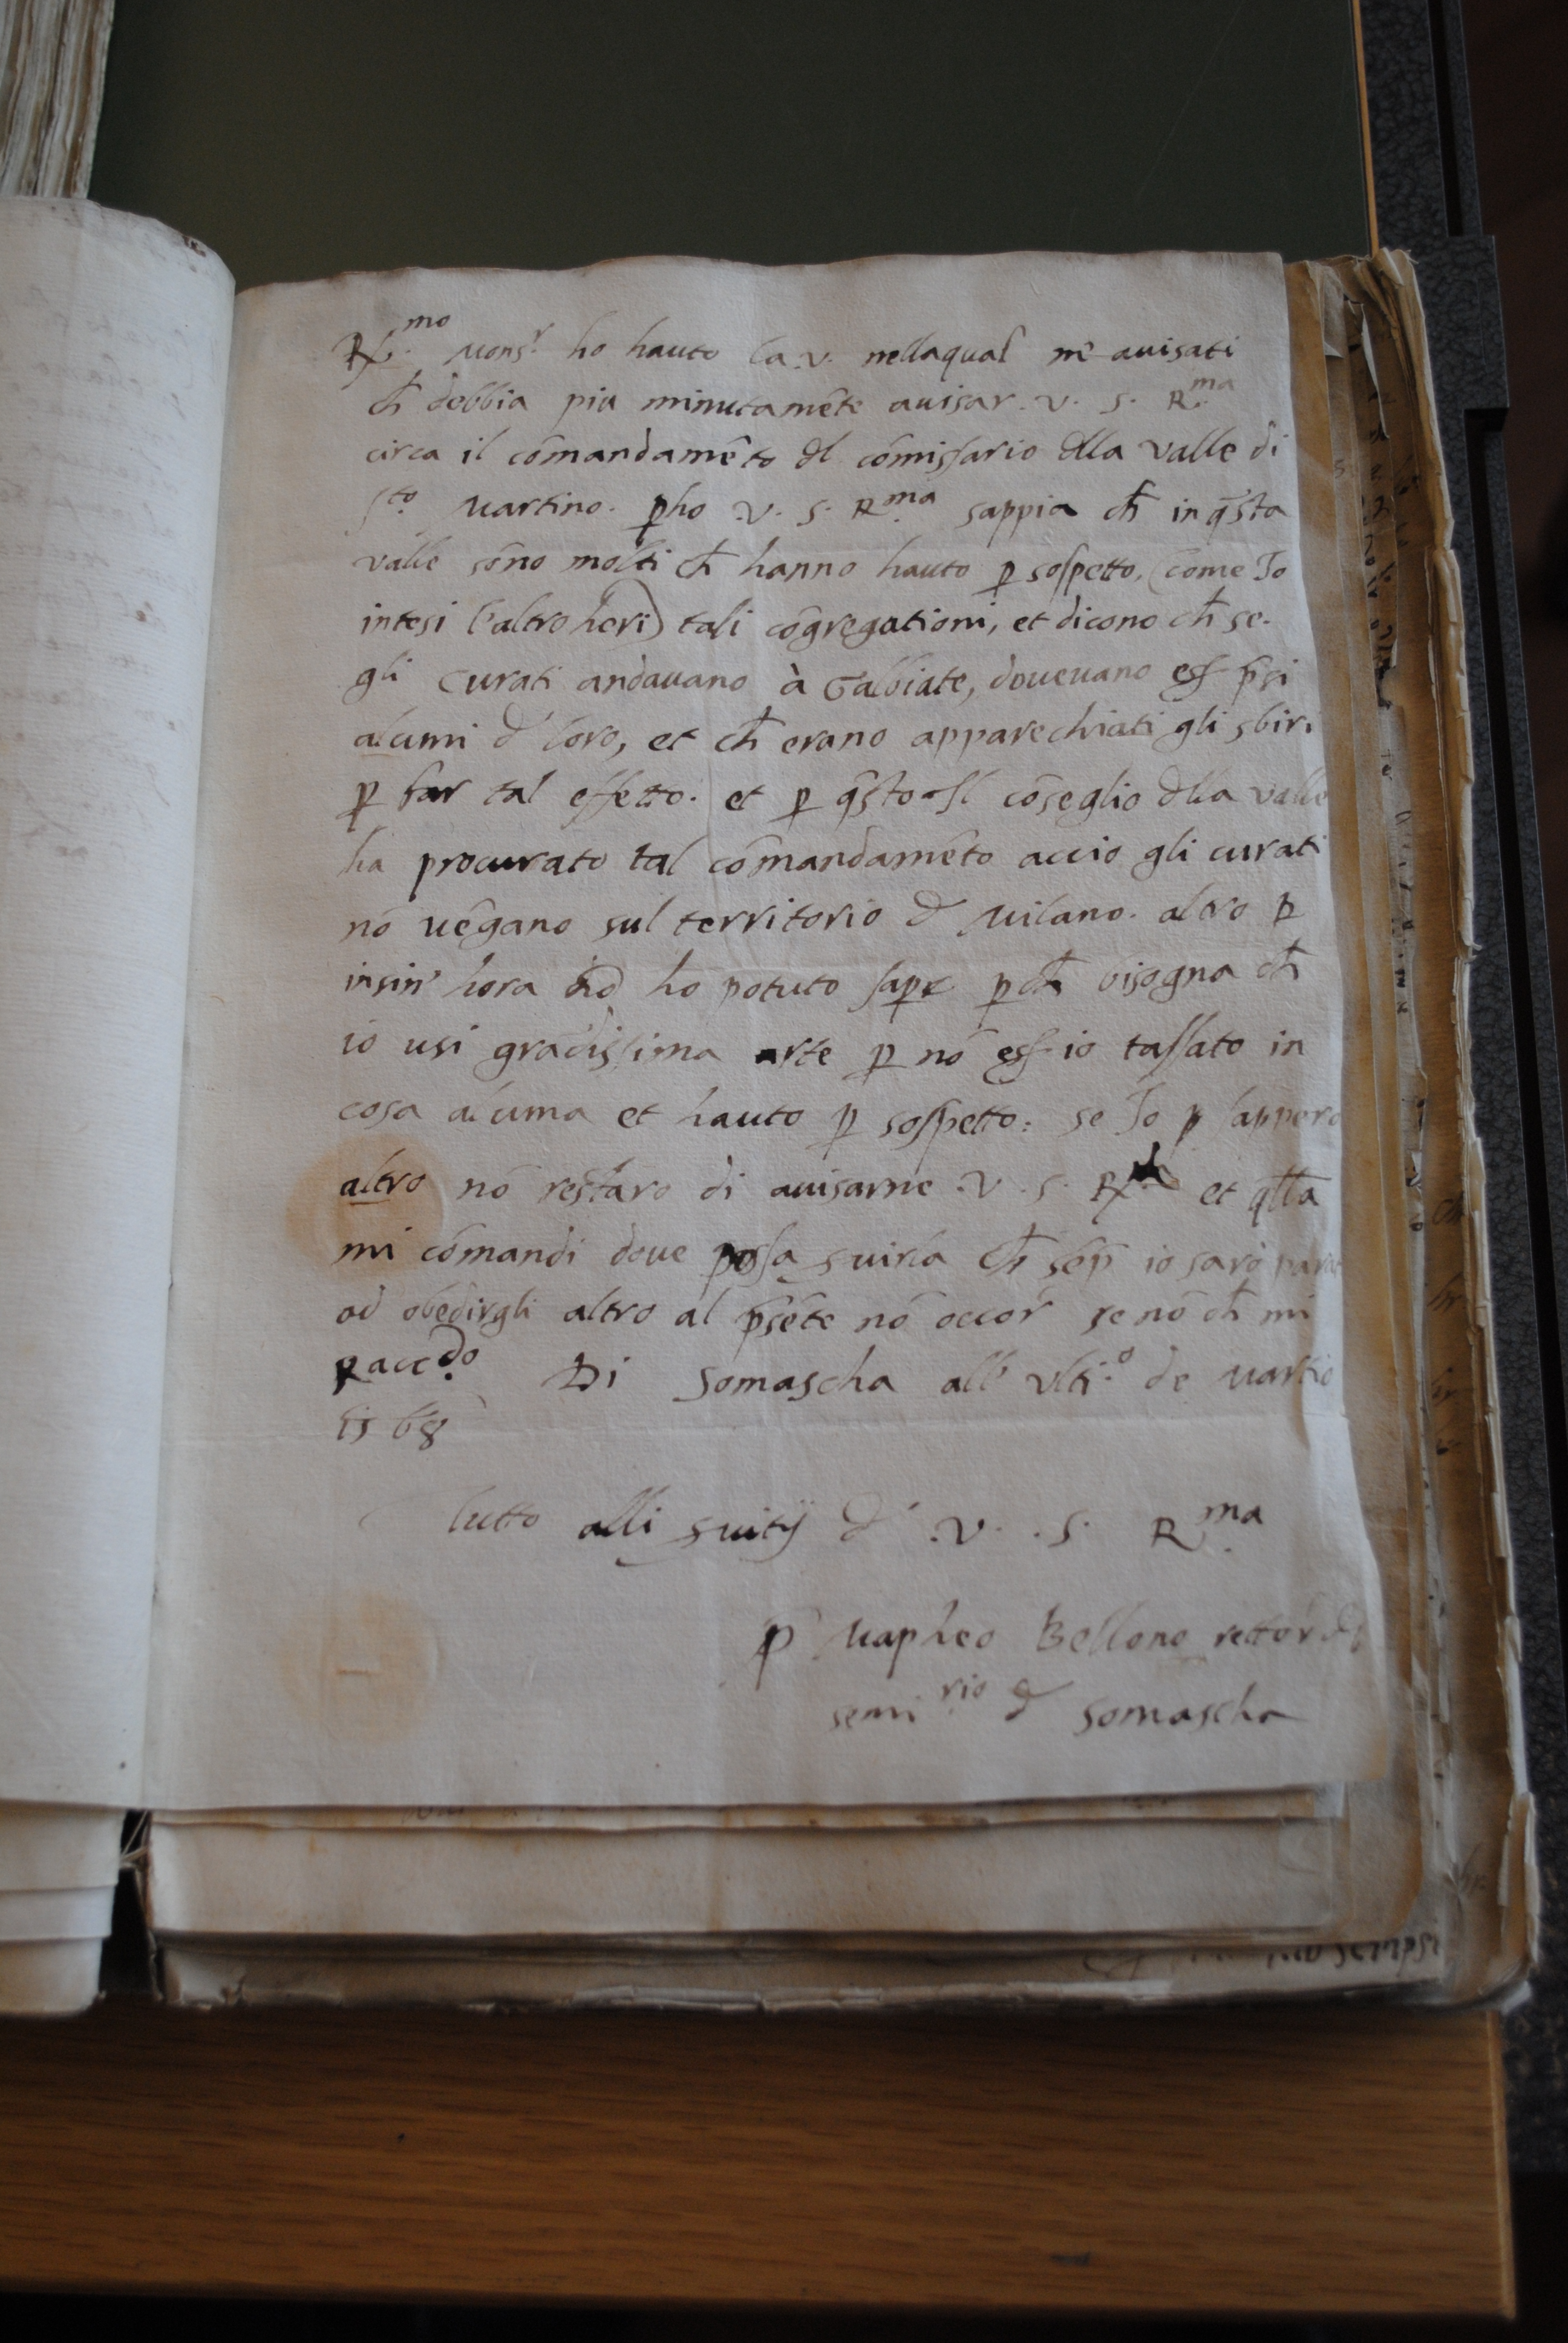 R.mo Mons.r ho hauto la .v. nellaqual m'e auisati
ch̄ debbia piu minutamēte auisar .v. s. R.ma
circa il cōmandamēto dl cōmissario dlla valle di
s.to Martino. ꝑho .v. s. R.ma sappia ch̄ in q̄sta
valle sōno molti ch̄ hanno hauto ꝑ sospetto, (come Io
intesi l'altro heri) tali cōgregationi, et dicono ch̄ se
gli curati andauano à Galbiate, doueuano ess̄ p̄si
alcuni d' loro, et ch̄ erano apparechiati gli sbiri
ꝑ far tal effetto. et ꝑ q̄sto Il cōseglio dlla valle
ha procurato tal cōmandamēto accio gli curati
nō uēgano sul territorio d' Milano. altro ꝑ
insin' hora nō ho potuto saꝑe ꝑch̄ bisogna ch̄
io usi grādissima arte ꝑ nō ess̄ io tassato in
cosa alcuna et hauto ꝑ sospetto: se Io sappero
altro nō restaro di auisarne .v. s. R. et q̄lla
mi cōmandi doue possa s̱uirla ch̄ sēp̄ io sarò
ad obedirgli altro al p̄sēte nō occor̄ se nō ch̄ mi
Racc.do Di Somascha all' vlti.o de Martio
1568
tutto alli s̱uitÿ d' .v. .s. R.ma
p̄ Mapheo Bellono rettor dl
semi.rio d' Somascha
scripsi